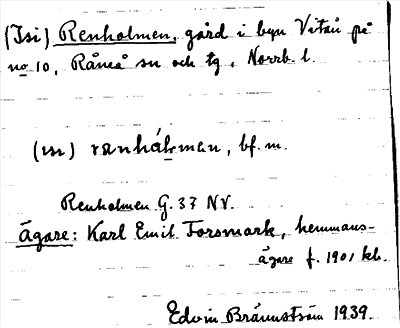 (Isi) Renholmen, gård i byn Vitån på
no 10, Råneå sn och tg, Norrb. l.
(ısı) ranhálman, bf. m.
Renholmen G. 37 NV.
Ägare: Karl Emil Forsmark, hemmans-
ägare f. 1901 kb.
Edvin Brännström 1939.